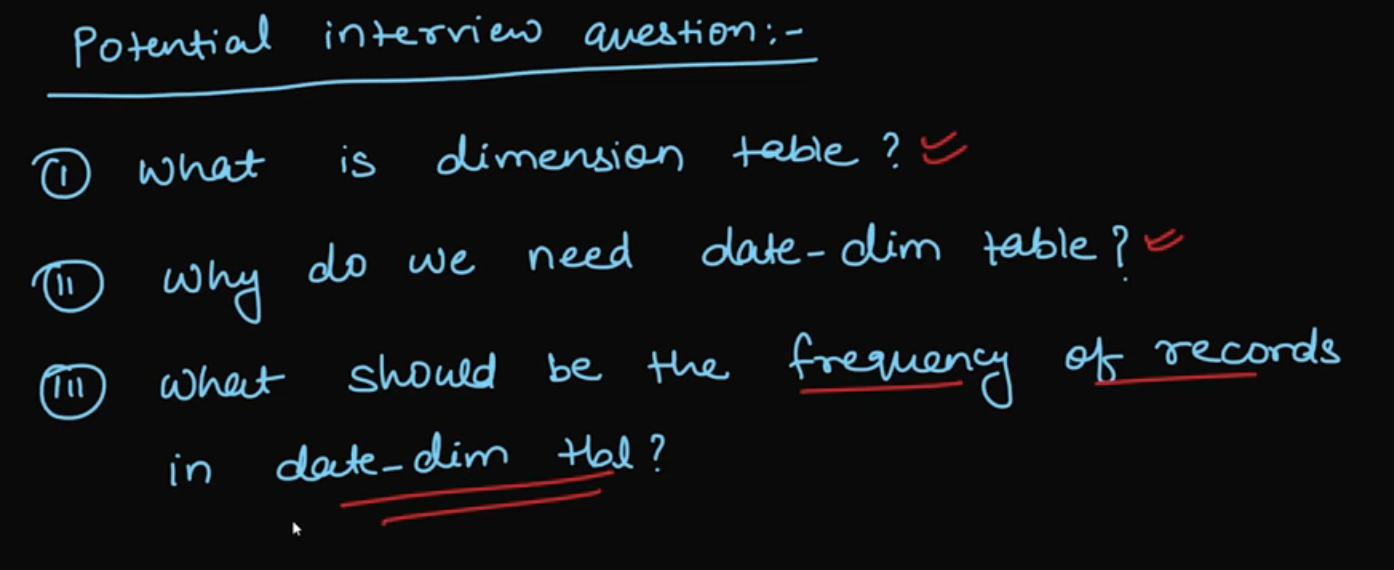 Potential interview question:-
(i) What is dimension table?
(ii) Why do we need date-dim table?
(iii) What should be the frequency of records
in date-dim tbl?